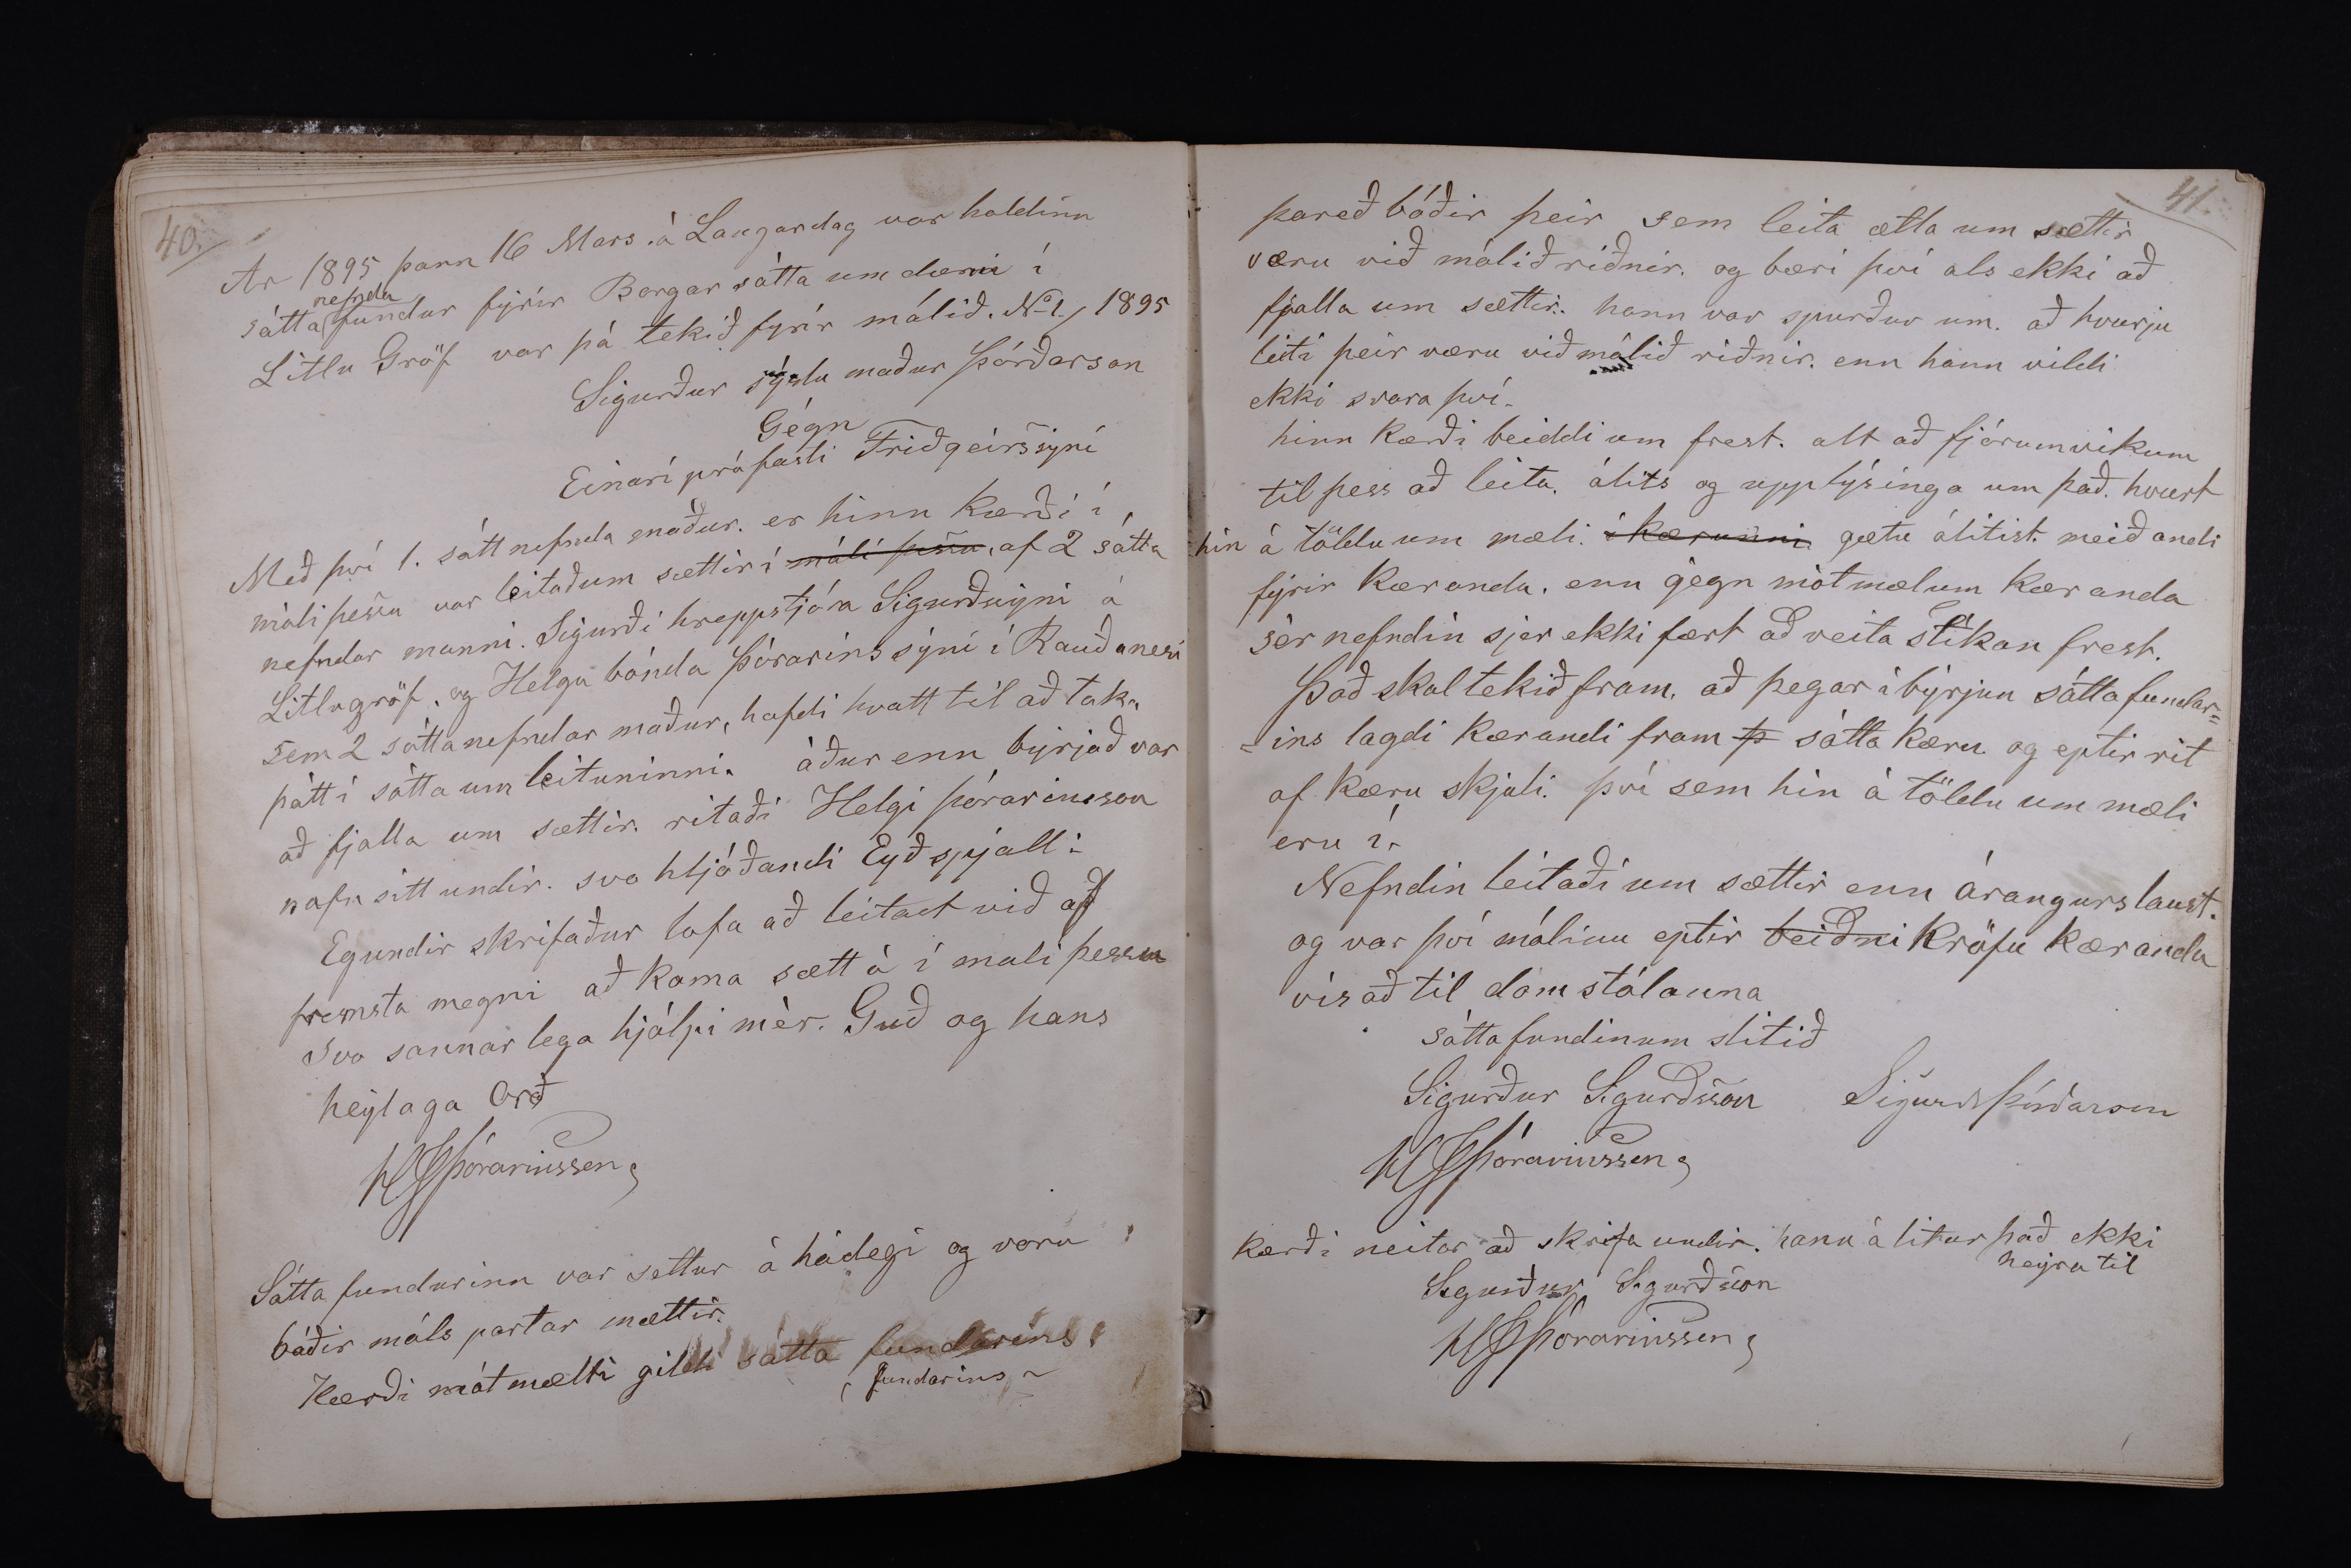 40.
Ar 1895 þann 16 Mars. á Laugardag var haldinn
nefnda
sátta fundur fýrir Borgar sátta um dæmi í
Litlu Gröf var þá tekið fyrir málið. No 1, 1895
Sigurður sýslu maður Þórðarson
Gégn
Einari prófasti Friðgeirssýni
Með því 1. sátt nefnda maður. er hinn kærði í
máli þessu var leitað um sættir í máli þessu, af 2 sátta
nefndar manni. Sigurði hreppstjóra Sigurðsýni á
Litlugröf, og Helga bónda Þórarinssýni í Rauðanesi
sem 2 sáttanefndar maður, hafdi kvatt til að taka
þátt í sátta um leituninni. áður enn býrjað var
að fjalla um sættir. ritaði Helgi Þórarinsson
nafn sitt undir. svo hljóðandi Eyðspjall:
Eg undir skrifaður lofa að leitast við af
fremsta megni að koma sætt á í mali þessu
Svo sannar lega hjálpi mèr. Guð og hans
heýlaga Orð
HGÞórarinssen
Sátta fundurinn var settur á hádegi og voru
báðir máls partar mættir.
Kærði mótmælti gildi sátta fundarins
fundarins
41.
þareð báðir þeir sem leita ætla um sættir
væru við málið riðnir. og bæri því als ekki að
fjalla um sættir. hann var spurður um. að hvurju
leiti þeir væru við málið riðnir. enn hann vildi
ekki svara því.
hinn kærði beiddi um frest. alt að fjórum vikum
til þess að leita. álits og upplýsinga um það. hvurt
hin á töldu um mæli. í kærunni gætu álitist meiðandi
fýrir kæranda. enn gegn mótmælum kæranda
sèr nefndin sjer ekki fært að veita slíkan frest.
Það skal tekið fram, að þegar í býrjun sátta fundar=
=ins lagdi kærandi fram þ sátta kæru og eptir rit
af kæru skjali. því sem hin á töldu um mæli
eru í.
Nefndin leitaði um sættir enn árangurslaust.
og var því málinu eptir beiðni kröfu kæranda
vísað til dómstólanna
sátta fundinum slitið
Sigurður Sigurðsson Sigurdr Þórðarson
HGÞórarinssen
kærði neitar að skrifa undir. hann á litur það ekki
heýra til
Sigurður Sigurðsson
HGÞórarinssen